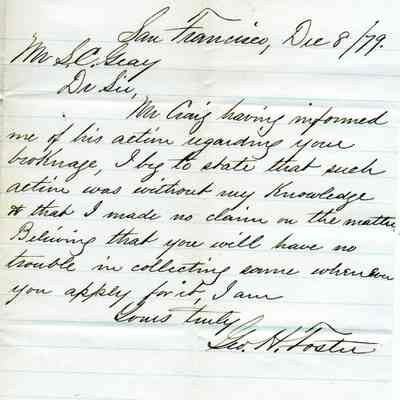 San Francisco, Dec 8/79.
Mr S. C. Geay
Dr Sir,
Mr Craig having informed
me of his action regarding your
brokrage, I beg to state that such
action was without my Knowledge
& that I made no claim on the matter,
Believing that you will have no
trouble in collecting same whenever
you apply for it, I am
Yours truly
Geo. H. Foster